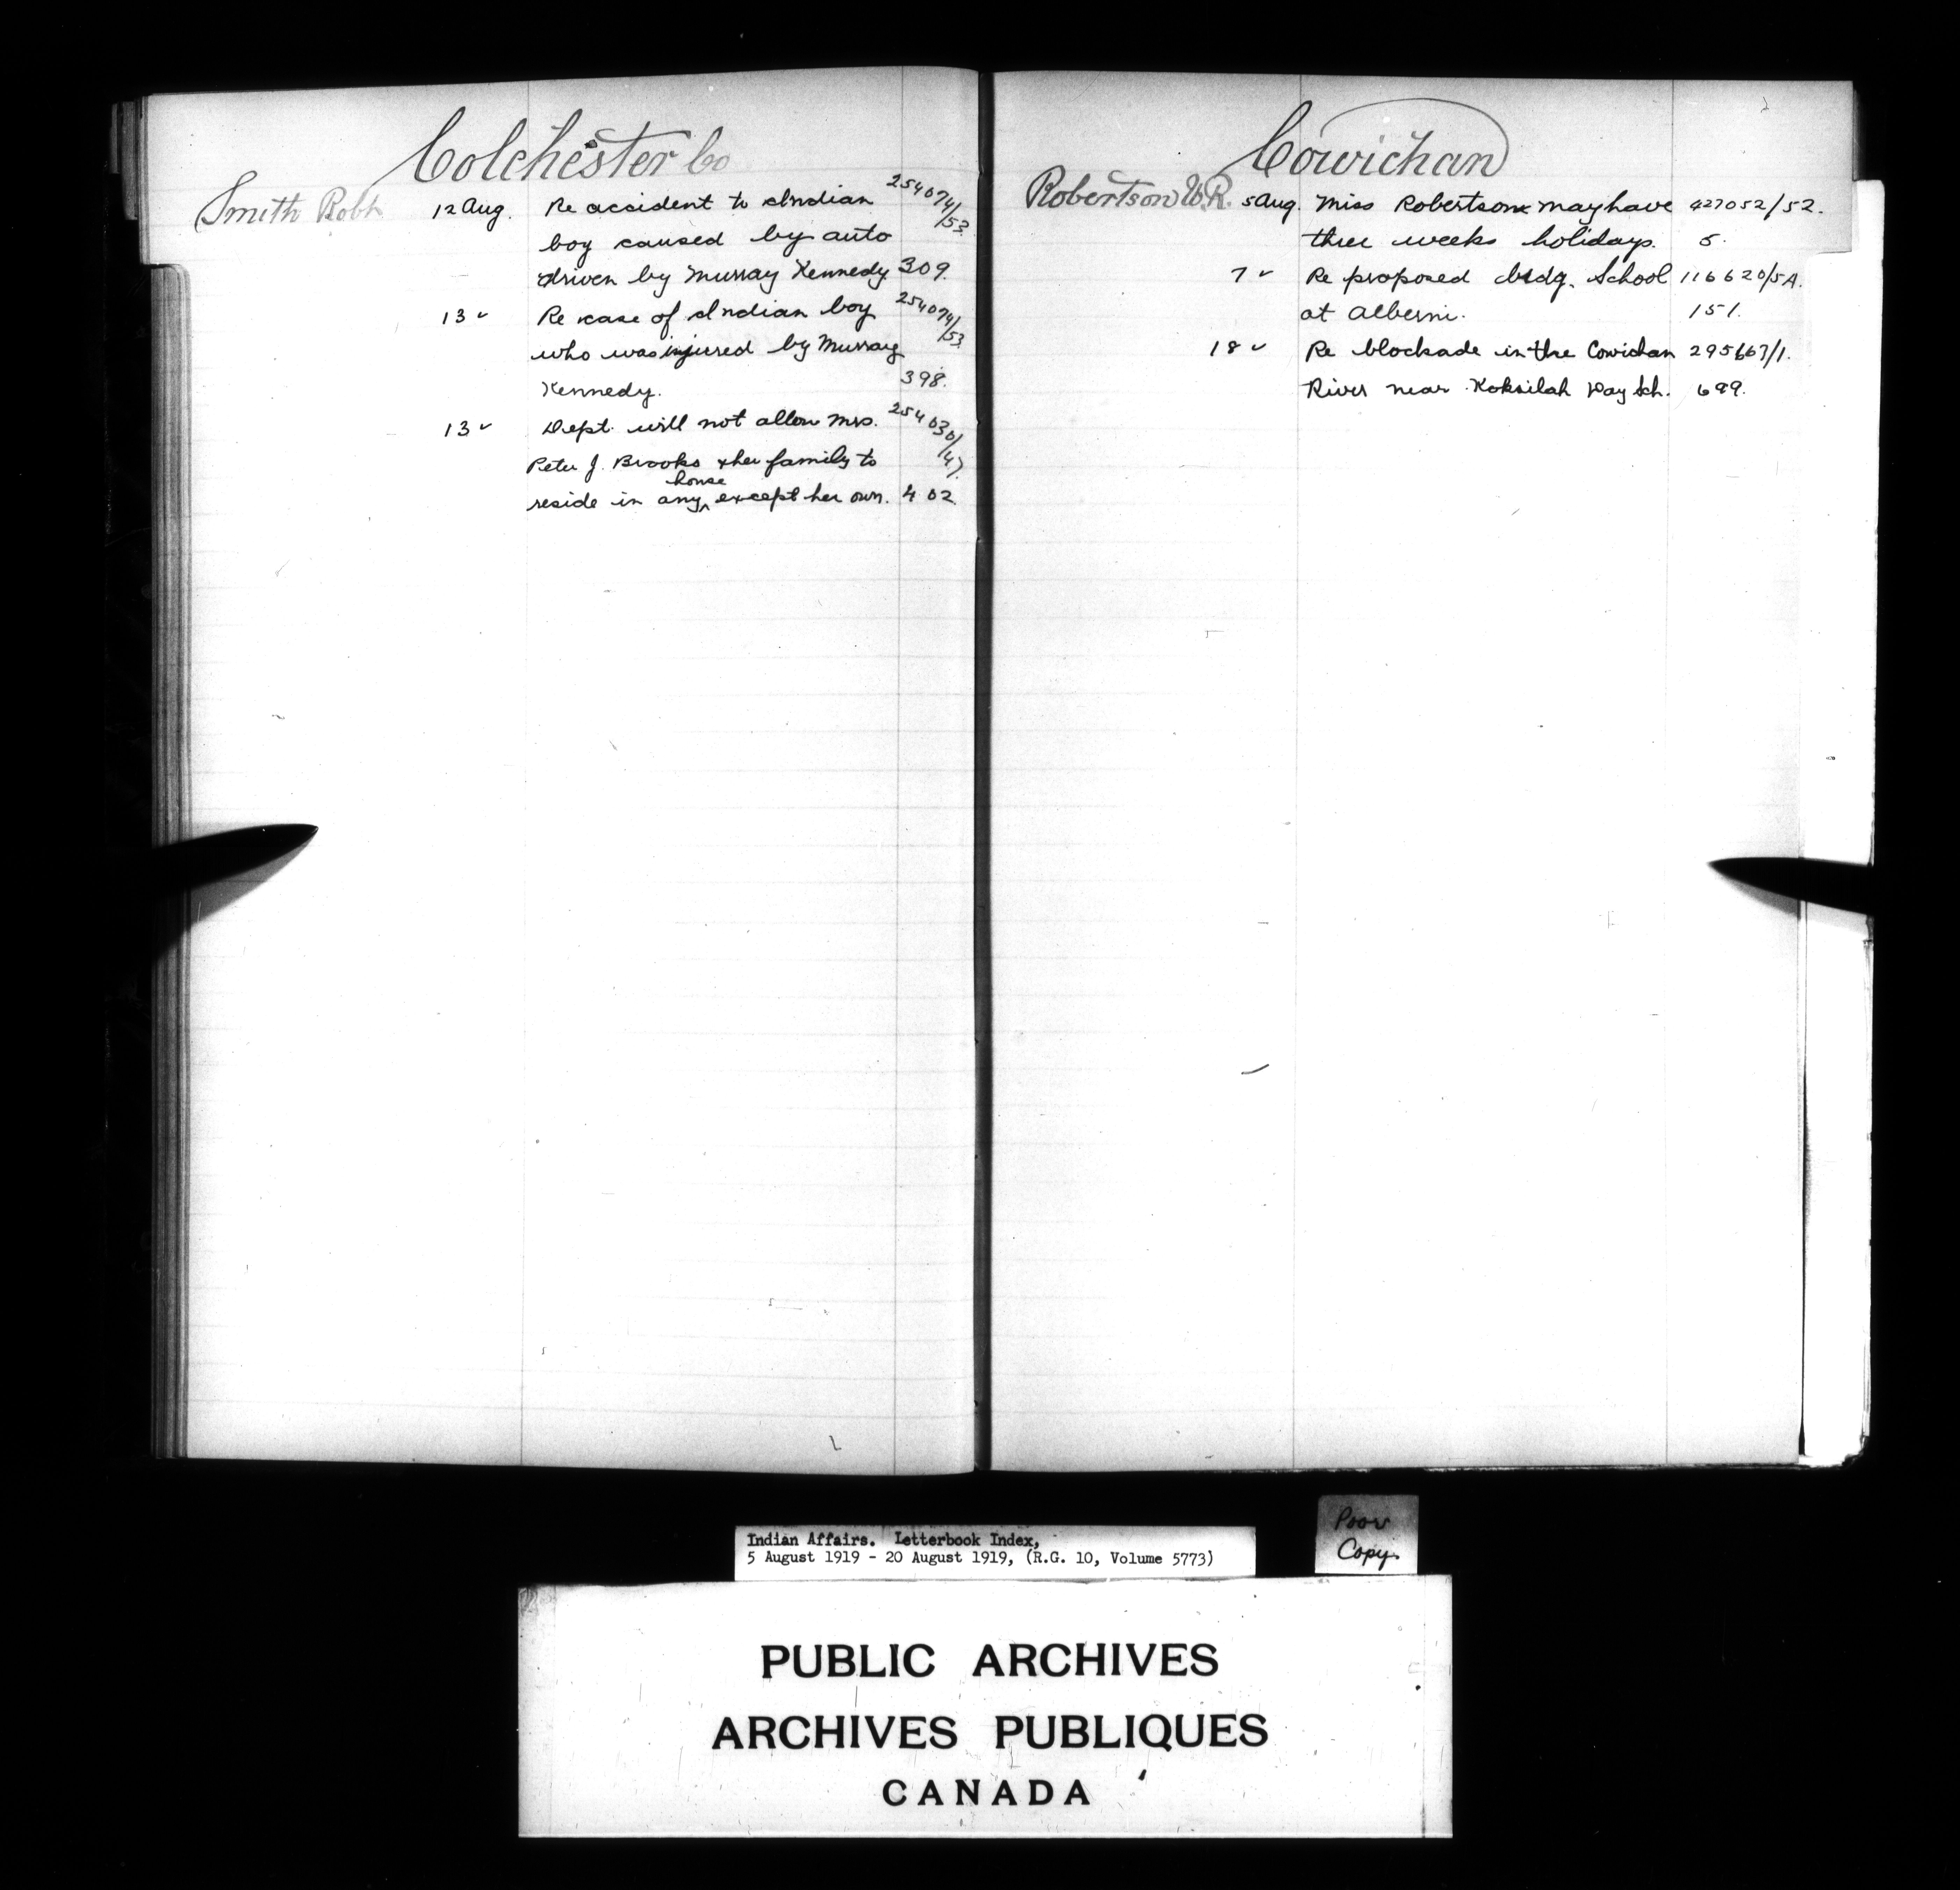 Colchester Co
Smith Robt 12 Aug. Re accident to Indian 254074/53.
boy caused by auto
driven by Murray Kennedy 309.
13 " Re case of Indian boy 254074/53
who was injured by Murray
Kennedy. 398.
13 " Dept. will not allow Mrs. 254030/47.
Peter J. Brooks & her family to
reside in any house except her own. 402
Cowichan
Robertson W.R. 5 Aug. Miss Robertson may have 427052/52.
three weeks holidays. 5.
7 " Re proposed bldg. School 116620/5A.
at Alberni. 151.
18 " Re blockade in the Cowichan 295667/1.
River near Koksilah Day Sch. 699.
Indian Affairs. Letterbook Index,
5 August 1919 - 20 August 1919, (R.G. 10, Volume 5773)
Poor
Copy
PUBLIC ARCHIVES
ARCHIVES PUBLIQUES
CANADA